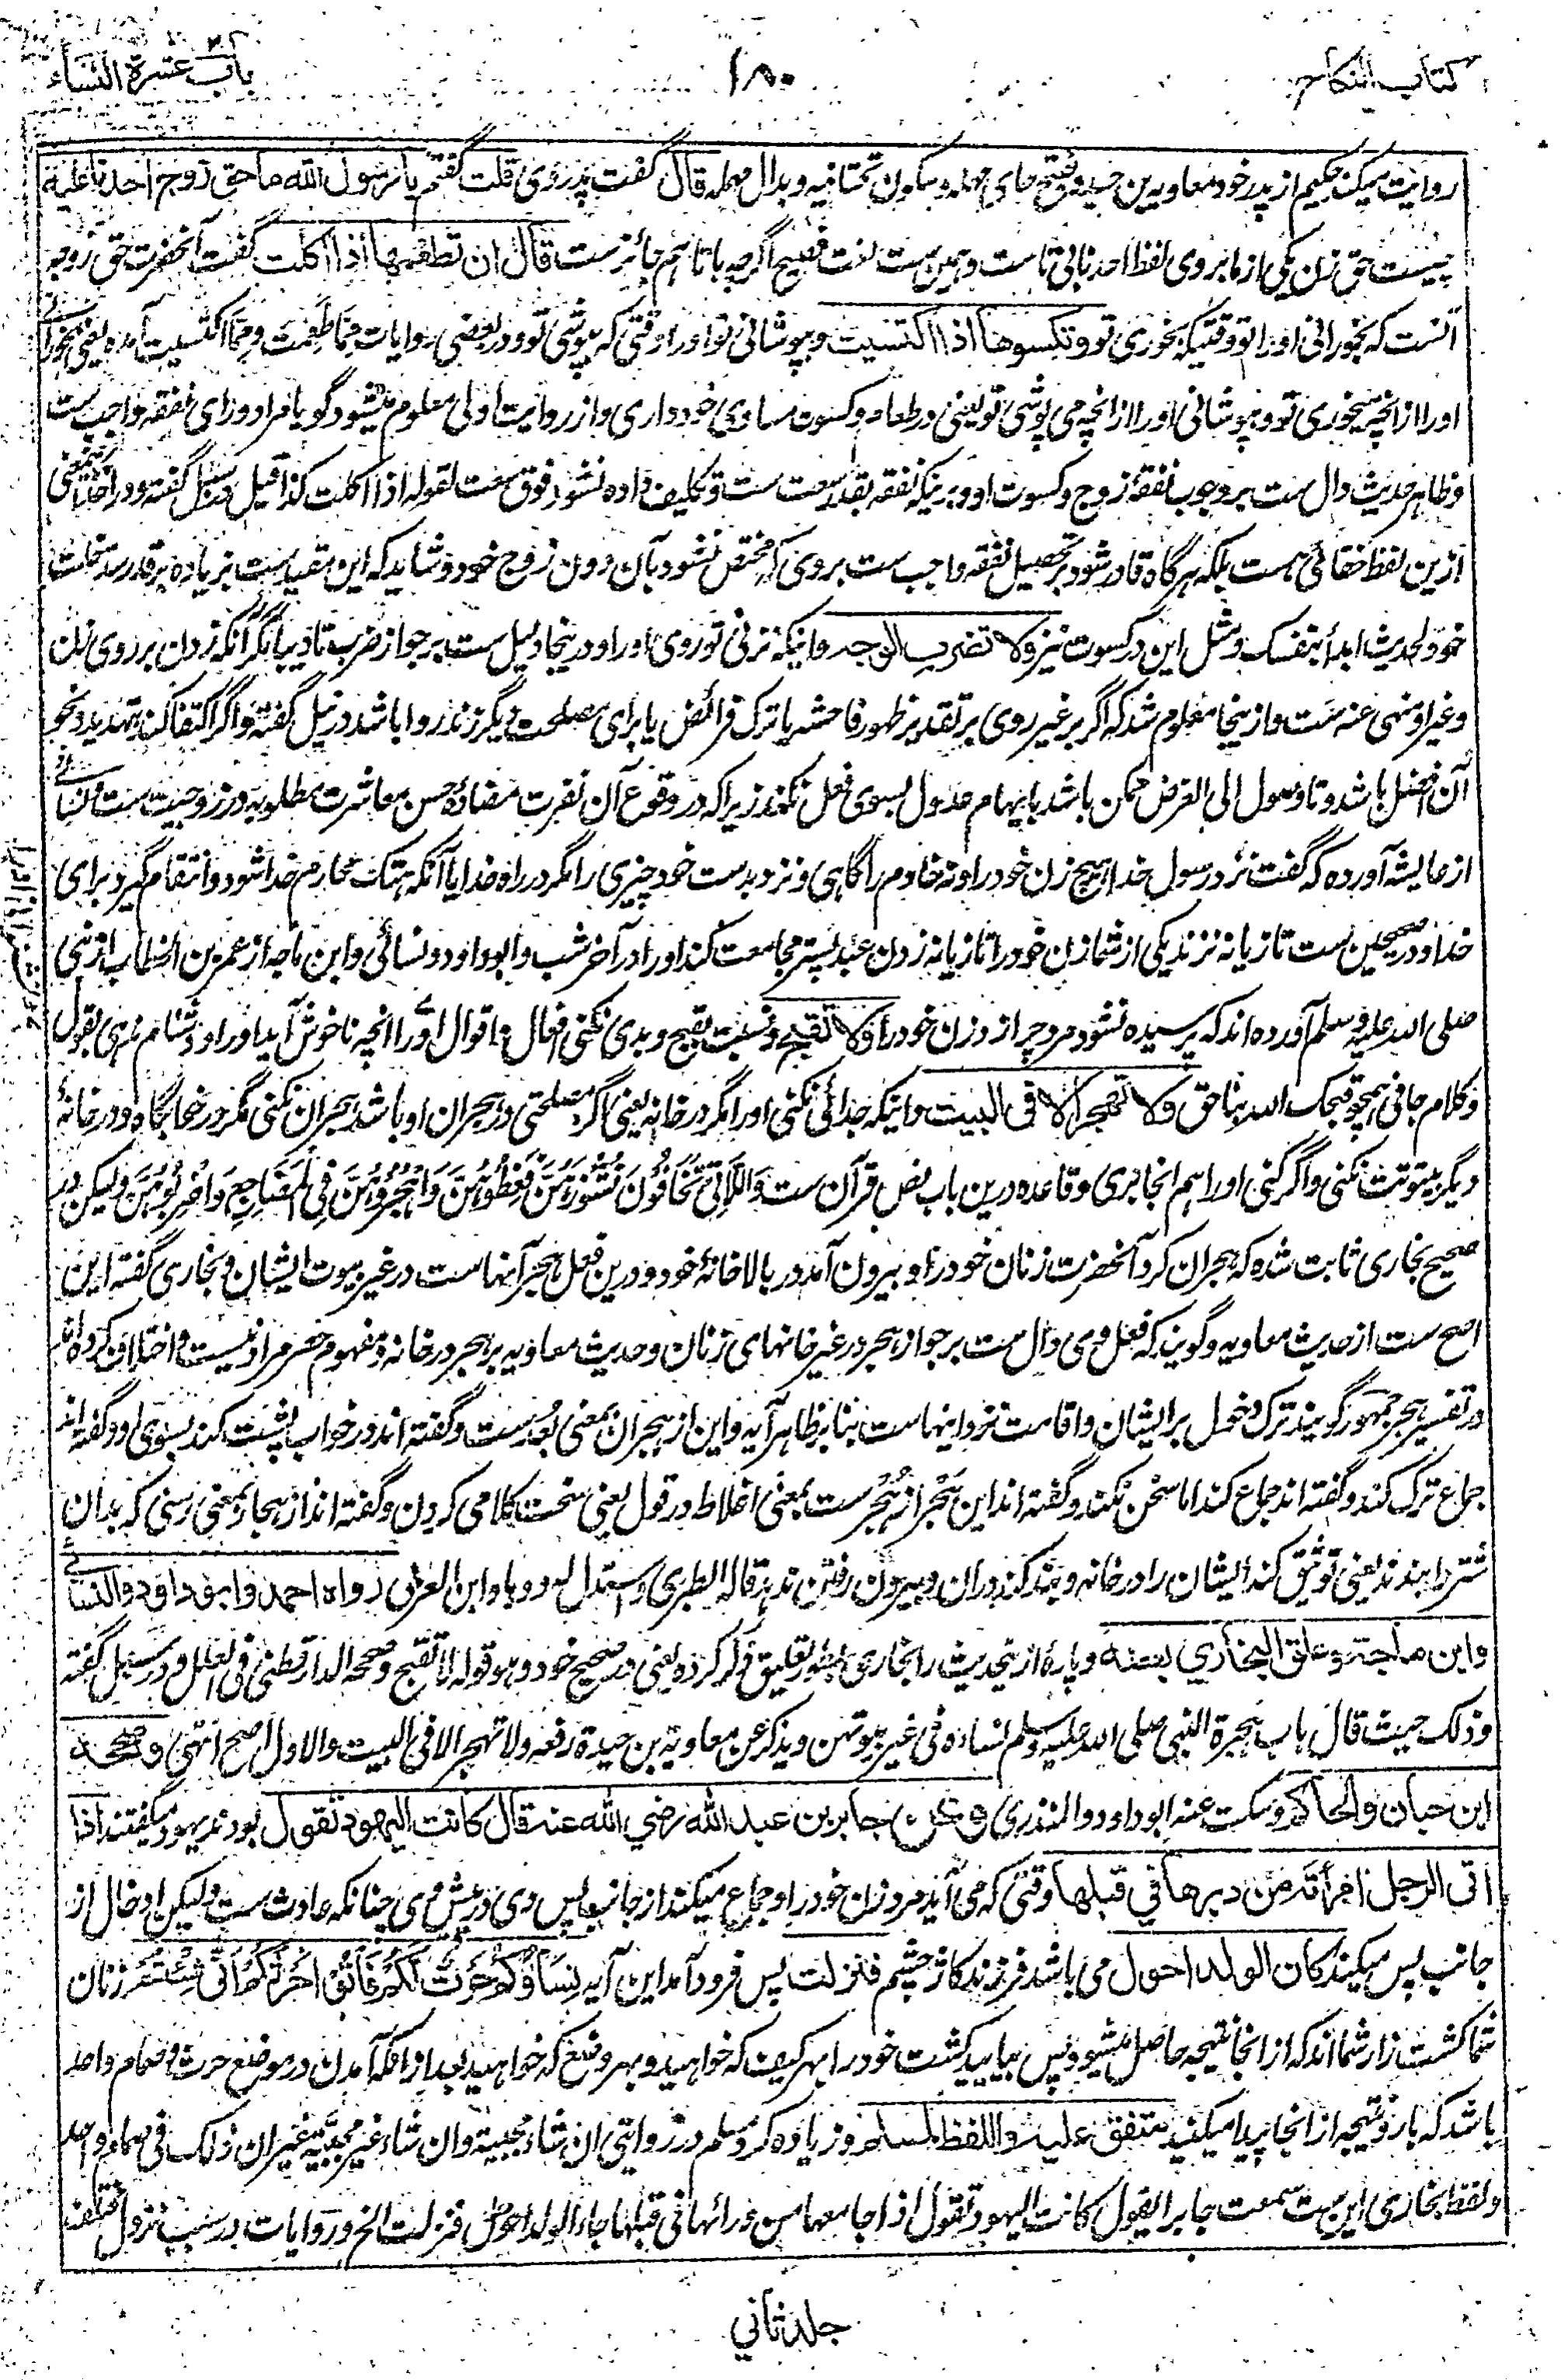 کتاب النکاح
۱۸۰
باب عشرة النساء
روایت میکند حکیم از پدر خود معاویه بن حیده بفتح حای مهمله و سکون تحتانیه و بدال مهمله قال گفت پدر وی قلت گفتم یا رسول الله ما حق زوج احدنا علیه
چیست حق زن یکی از ما بر وی لفظ احد نابی تاست و همین ست لغت فصیح اگرچه با تا هم جائز ست قال ان تطعمها اذا اکلت گفت آنحضرت حق زوجه
آنست که بخورانی او را تو وقتیکه بخوری تو و تکسوها اذا اکتسیت و بپوشانی تو او را وقتی که بپوشی تو و در بعضی روایات مما طعمت و مما اکتسیت آمده یعنی بخورانے
او را از انچه میخوری تو و بپوشانی او را از انچه می پوشی تو یعنی در طعام و کسوت مساوی خود داری و از روایت اولی معلوم میشود گویا مراد ورای نفقه واجب ست
و ظاهر حدیث دال ست بر وجوب نفقه زوج و کسوت او و برینکه نفقه بقدر سعت ست و تکلیف داده نشود فوق سعت لقوله اذا اکلت کذا قیل در سبل گفته و در اخذ این معنی
ازین لفظ خفائی هست بلکه هرگاه قادر شود بر تحصیل نفقه واجب ست بر وی که مختص نشود بآن دون زوج خود و شاید که این مقید ست بزیاده بر قدر سد خلت
خود لحدیث ابدأ بنفسک و مثل این در کسوت نیز ولا تضرب الوجه و اینکه نزنی تو روی او را و درینجا دلیل ست بر جواز ضرب تادیبا مگر آنکه زدن بر روی زن
و غیر او منهی عنه ست و ازینجا معلوم شد که اگر بر غیر روی بر تقدیر ظهور فاحشه یا ترک فرائض یا برای مصلحت دیگر زند روا باشد در نیل گفته و اگر اکتفا کند بتهدید و نحو
آن افضل باشد و تا وصول الی الغرض ممکن باشد بایهام عدول بسوی فعل نکند زیرا که در وقوع آن نفرت مضاده حسن معاشرت مطلوبه در زوجیت ست و نسائے
از عایشه آورده که گفت نزد رسول خدا هیچ زن خود را و نه خادم را گاهی و نزد بدست خود چیزی را مگر در راه خدا یا آنکه هتک محارم خدا شود و انتقام گیرد برای
خدا و در صحیحین ست تازیانه نزند یکی از شما زن خود را تازیانه زدن عبد پستر مجامعت کند او را در آخر شب و ابوداود و نسائی و ابن ماجه از عمر بن الخطاب از نبی
صلی الله علیه وسلم آورده اند که پرسیده نشود مرد چرا زد زن خود را ولا تقبح و نسبت بقبح و بدی نکنی افعال و اقوال او را انچه ناخوش آید او را و دشنام ندهی بقول
و کلام جافی همچو قبحک الله بناحق ولا تهجر الا فی البیت و اینکه جدائی نکنی او را مگر در خانه یعنی اگر مصلحتی در هجران او باشد هجران نکنی مگر در خوابگاه و در خانهٔ
دیگر بیتوتت نکنی و اگر کنی او را هم انجا بری و قاعده درین باب نص قرآن ست وَاللَّاتِي تَخَافُونَ نُشُوزَهُنَّ فَعِظُوهُنَّ وَاهْجُرُوهُنَّ فِي الْمَضَاجِعِ وَاضْرِبُوهُنَّ ولیکن در
صحیح بخاری ثابت شده که هجران کرد آنحضرت زنان خود را و بیرون آمد در بالا خانهٔ خود و درین فعل هجر آنهاست در غیر بیوت ایشان و بخاری گفته این
اصح ست از حدیث معاویه و گویند که فعل وی دال ست بر جواز هجر در غیر خانهای زنان و حدیث معاویه بر هجر در خانه و مفهوم حصر مراد نیست و اختلاف کرده اند
در تفسیر هجر جمهور گویند ترک دخول بر ایشان و اقامت نزد اینهاست بنا بر ظاهر آیه و این از هجران بمعنی بُعد ست و گفته اند در خواب پشت کند بسوی او و گفته اند
جماع ترک کند و گفته اند جماع کند اما سخن نکند و گفته اند این هَجْر از هُجْر ست بمعنی اغلاظ در قول یعنی سخت کلامی کردن و گفته اند از هجار بمعنی رسنی که بدان
شتر را بندند یعنی توثیق کند ایشان را در خانه و بند کند دران و بیرون رفتن ندهد قاله الطبری و استدل له و وهاه ابن العربی رواه احمد وابو داود والنسائے
وابن ماجة وعلق البخاري بعضه و پارهٔ از ینحدیث را بخاری بطور تعلیق ذکر کرده یعنی در صحیح خود و هو قوله لا تقبح و صححه الدارقطنی فی العلل و در سبل گفته
وذلک حیث قال باب هجرة النبی صلی الله علیه وسلم نساءه فی غیر بیوتهن ویذکر عن معاویة بن حیدة رفعه ولا تهجر الا فی البیت والاول اصح انتهی وصححه
ابن حبان والحاکم وسکت عنه ابوداود والمنذری وعن جابر بن عبد الله رضي الله عنه قال کانت الیهود تقول بودند یهود میگفتند اذا
اتی الرجل امرأته من دبرها في قبلها وقتی که می آید مرد زن خود را و جماع میکند از جانب پس وی در پیش وی چنانکه عادت ست ولیکن ادخال از
جانب پس میکند کان الولد احول می باشد فرزند کاژ چشم فنزلت پس فرود آمد این آیه نِسَاؤُكُمْ حَرْثٌ لَكُمْ فَأْتُوا حَرْثَكُمْ أَنَّى شِئْتُمْ زنان
شما کشت زار شما اند که از انجا نتیجه حاصل میشود پس بیایید کشت خود را بهر کیف که خواهید و بهر وضع که خواهید بعد از انکه آمدن در موضع حرث و صمام واحد
باشد که بار و نتیجه از انجا پیدا میکند متفق علیه واللفظ لمسلم و زیاده کرد مسلم در روایتی ان شاء مجبیة وان شاء غیر مجبیة غیر ان ذلک فی صمام واحد
و لفظ بخاری این ست سمعت جابرا یقول کانت الیهود تقول اذا جامعها من ورائها فی قبلها جاء الولد احول فنزلت الخ و روایات در سبب نزول مختلف
جلد ثاني